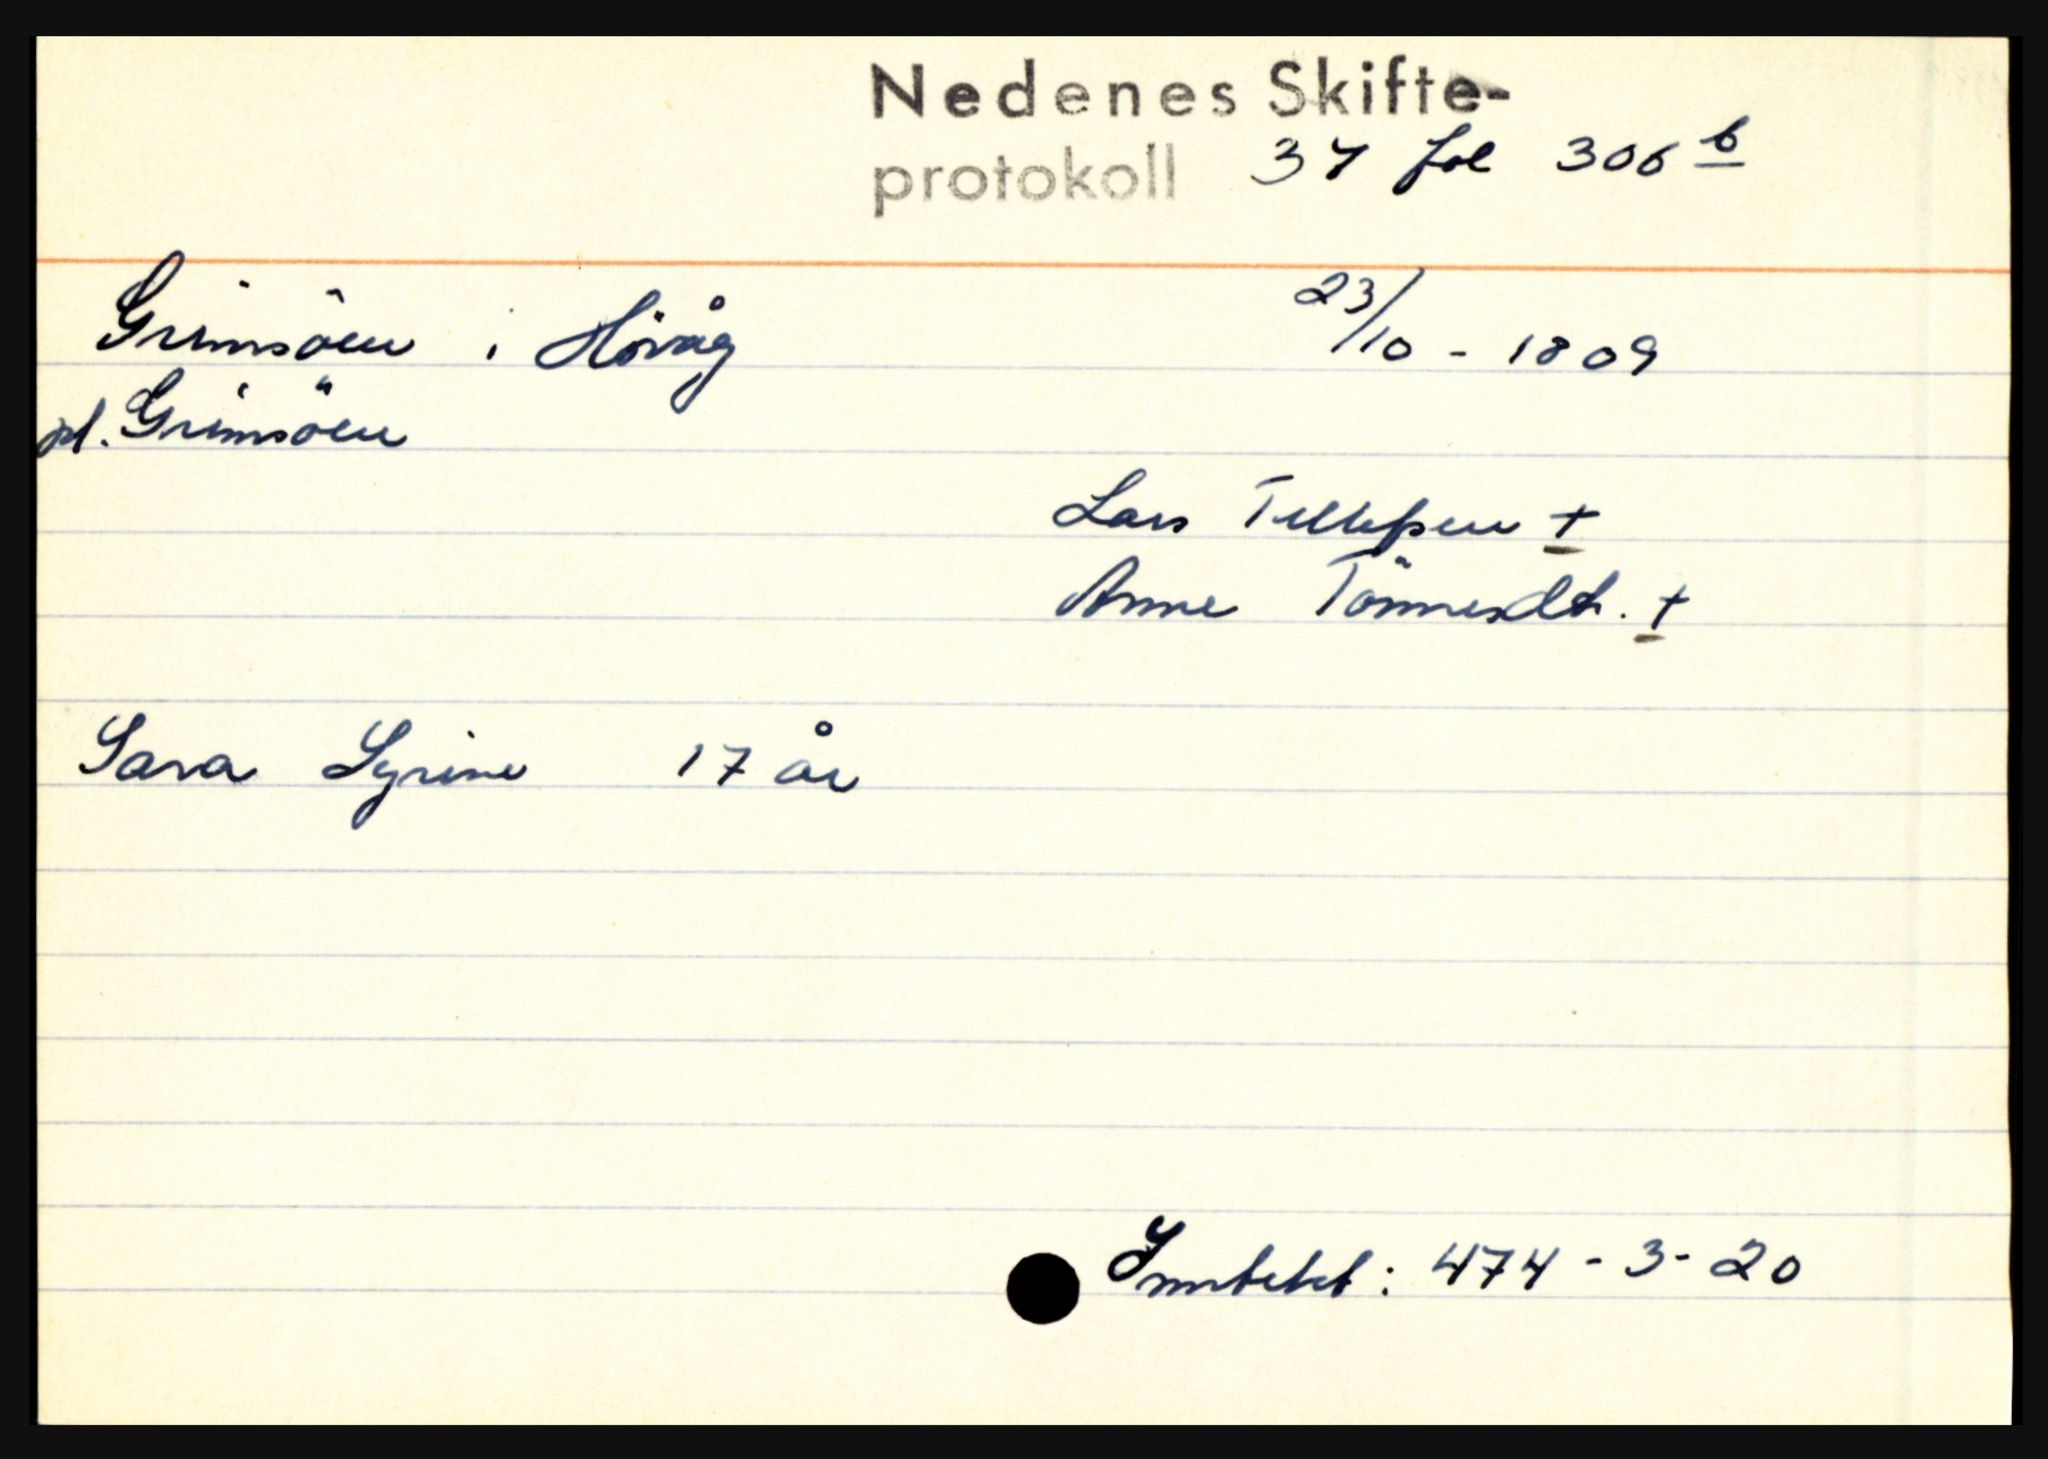 Nedenes Skifte-
protokoll 37 fol 306 b
Grimsöen i Hövåg 23/10 - 1809
Grimsöen
Lars Tellefsen +
Anne Tönnesdtr. +
Sara Syrine 17 år
Inntekt: 474 - 3 - 20